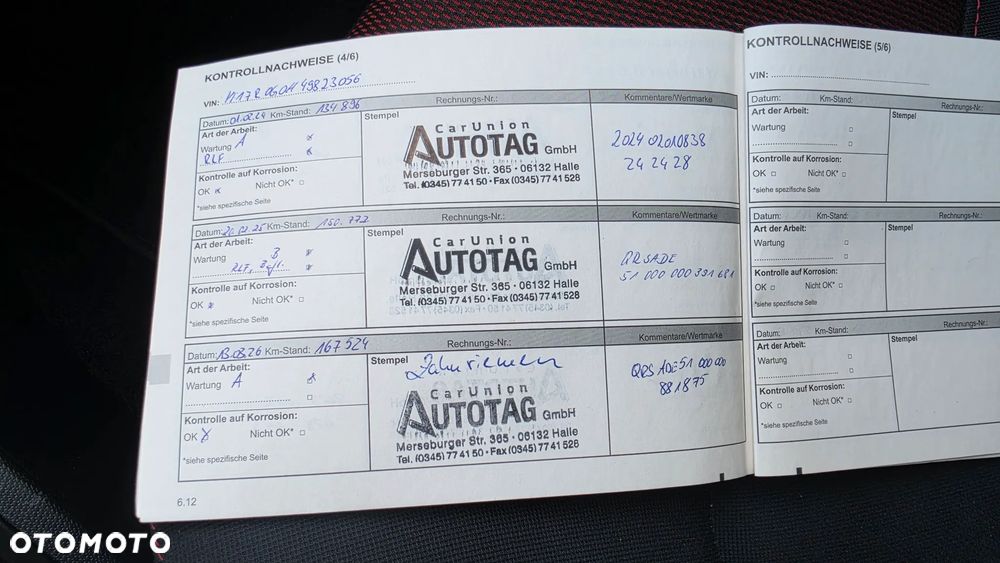 KONTROLLNACHWEISE (4/6)
VIN:
Datum: 01.02.24 Km-Stand: 134 896 Rechnungs-Nr.: Kommentare/Wertmarke
Art der Arbeit:
Wartung A
RLF
Kontrolle auf Korrosion:
OK Nicht OK*
*siehe spezifische Seite
Stempel
CarUnion
AUTOTAG GmbH
Merseburger Str. 365 · 06132 Halle
Tel. (0345) 77 41 50 · Fax (0345) 77 41 528
2024 02010838
24 24 28
Datum: 20.02.25 Km-Stand: 150.772 Rechnungs-Nr.: Kommentare/Wertmarke
Art der Arbeit:
Wartung B
RLF,
Kontrolle auf Korrosion:
OK Nicht OK*
*siehe spezifische Seite
Stempel
CarUnion
AUTOTAG GmbH
Merseburger Str. 365 · 06132 Halle
Tel. (0345) 77 41 50 · Fax (0345) 77 41 528
51 000 000 331 681
Datum: 13.03.26 Km-Stand: 167 524 Rechnungs-Nr.: Kommentare/Wertmarke
Art der Arbeit:
Wartung A
Kontrolle auf Korrosion:
OK Nicht OK*
*siehe spezifische Seite
Stempel Zahnriemen
CarUnion
AUTOTAG GmbH
Merseburger Str. 365 · 06132 Halle
Tel. (0345) 77 41 50 · Fax (0345) 77 41 528
51 000 000
881875
6.12
KONTROLLNACHWEISE (5/6)
VIN:
Datum: Km-Stand: Rechnungs-Nr.:
Art der Arbeit:
Wartung
Kontrolle auf Korrosion:
OK Nicht OK*
*siehe spezifische Seite
Stempel
Datum: Km-Stand: Rechnungs-Nr.:
Art der Arbeit:
Wartung
Kontrolle auf Korrosion:
OK Nicht OK*
*siehe spezifische Seite
Stempel
Datum: Km-Stand: Rechnungs-Nr.:
Art der Arbeit:
Wartung
Kontrolle auf Korrosion:
OK Nicht OK*
*siehe spezifische Seite
Stempel
OTOMOTO